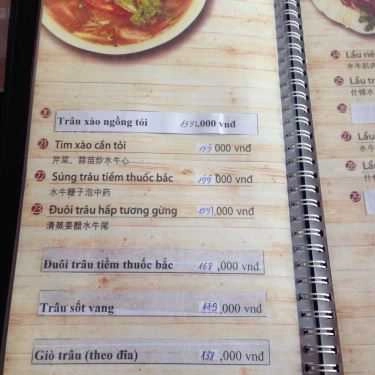 Trâu xào ngồng tỏi ,000 vnđ
21 Tim xào cần tỏi 000 vnđ
芹菜、蒜苗炒水牛心
22 Súng trâu tiềm thuốc bắc 199 000 vnđ
水牛鞭子泡中药
23 Đuôi trâu hấp tương gừng ,000 vnđ
清蒸姜醋水牛尾
Đuôi trâu tiềm thuốc bắc 168 ,000 vnđ
Trâu sốt vang ,000 vnđ
Giò trâu (theo đĩa) 138 ,000 vnđ
Lẩu
水牛
24 Lẩu
什锦水
27 Lẩu
水牛
28 Lẩu
什锦
29